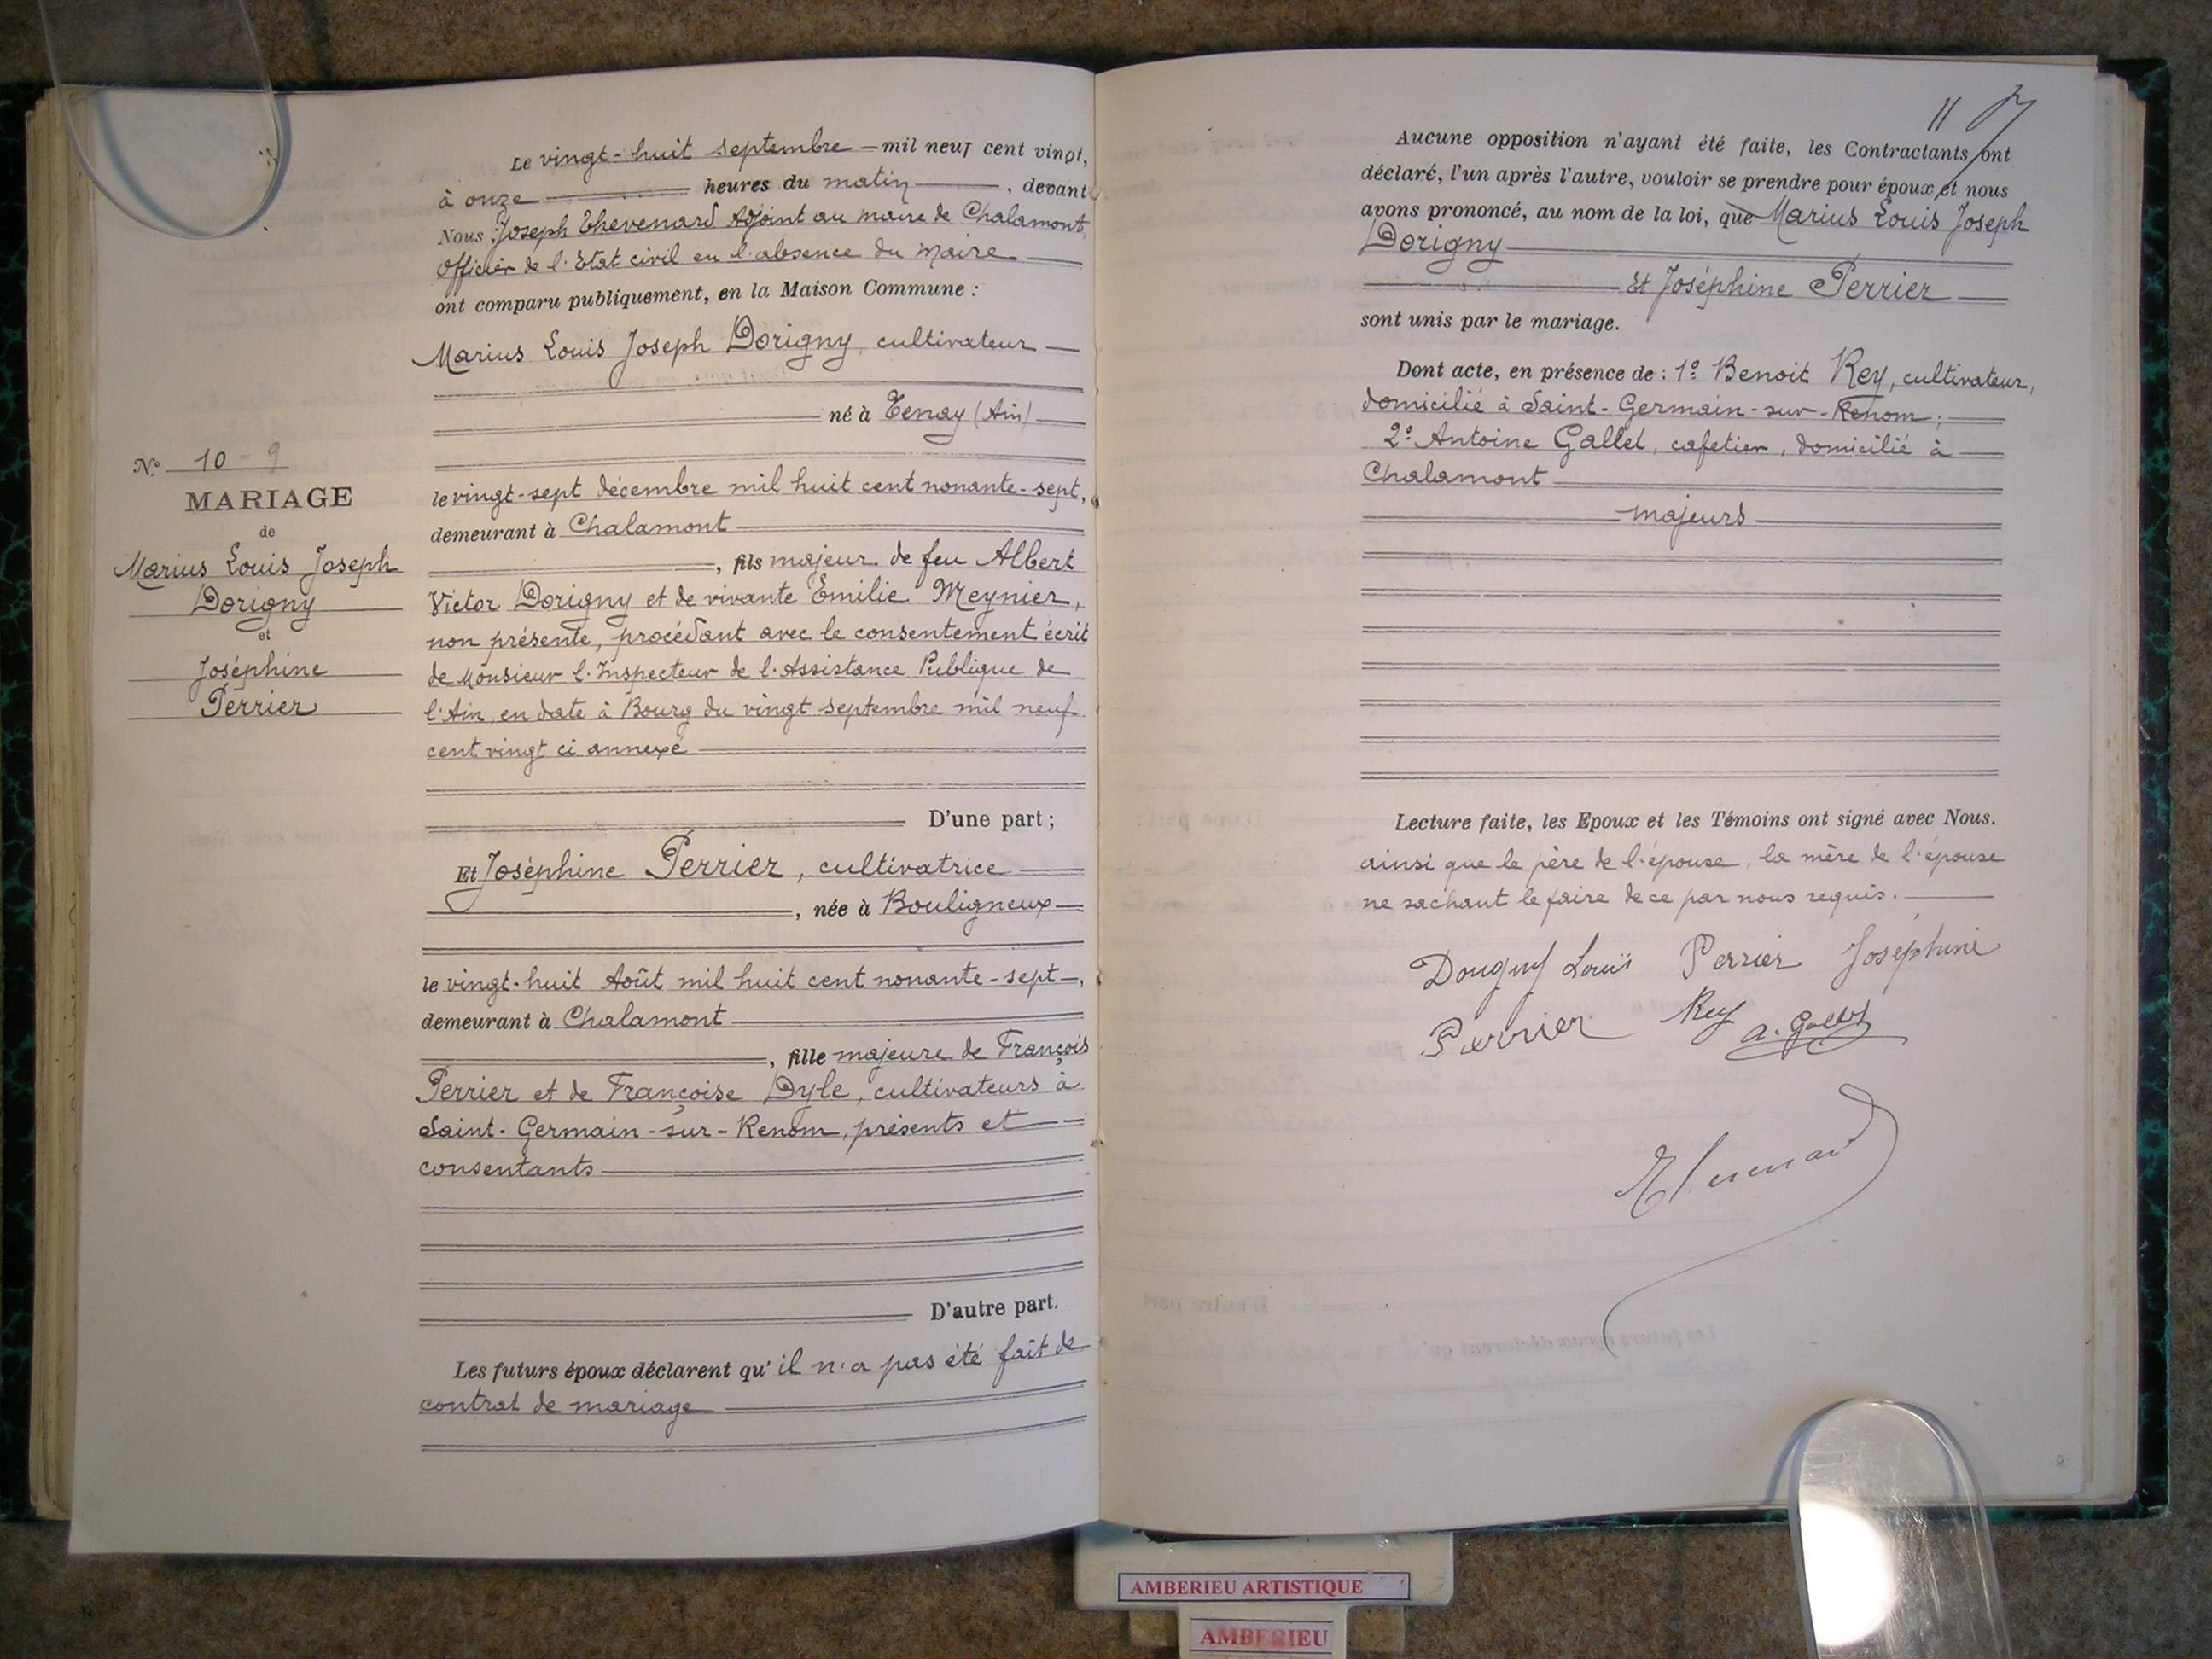 Le vingt-huit septembre — mil neuf cent vingt,
à onze heures du matin, devant
Nous Joseph Thevenard Adjoint au maire de Chalamont,
Officier de l'Etat civil en l'absence du Maire
ont comparu publiquement, en la Maison Commune :
Marius Louis Joseph Dorigny, cultivateur
né à Tenay (Ain)
le vingt-sept décembre mil huit cent nonante-sept,
demeurant à Chalamont
, fils majeur de feu Albert
Victor Dorigny et de vivante Emilie Meynier,
non présente, procédant avec le consentement écrit
de Monsieur l'Inspecteur de l'Assistance Publique de
l'Ain, en date à Bourg du vingt septembre mil neuf
cent vingt ci annexé
D'une part ;
Et Joséphine Perrier, cultivatrice
, née à Bouligneux
le vingt-huit Août mil huit cent nonante-sept,
demeurant à Chalamont
, fille majeure de François
Perrier et de Françoise Dyle, cultivateurs à
Saint-Germain-sur-Renom, présents et
consentants
D'autre part.
Les futurs époux déclarent qu'il n'a pas été fait de
contrat de mariage
N° 10 - 9
MARIAGE
de
Marius Louis Joseph
Dorigny
et
Joséphine
Perrier
11
Aucune opposition n'ayant été faite, les Contractants ont
déclaré, l'un après l'autre, vouloir se prendre pour époux et nous
avons prononcé, au nom de la loi, que Marius Louis Joseph
Dorigny
Et Joséphine Perrier
sont unis par le mariage.
Dont acte, en présence de : 1° Benoit Rey, cultivateur,
domicilié à Saint-Germain-sur-Renom ;
2° Antoine Gallet, cafetier, domicilié à
Chalamont
majeurs
Lecture faite, les Epoux et les Témoins ont signé avec Nous.
ainsi que le père de l'épouse, la mère de l'épouse
ne sachant le faire de ce par nous requis.
Dorigny Louis Perrier Joséphine
Perrier Rey A. Gallet
Thevenard
AMBERIEU ARTISTIQUE
AMBERIEU